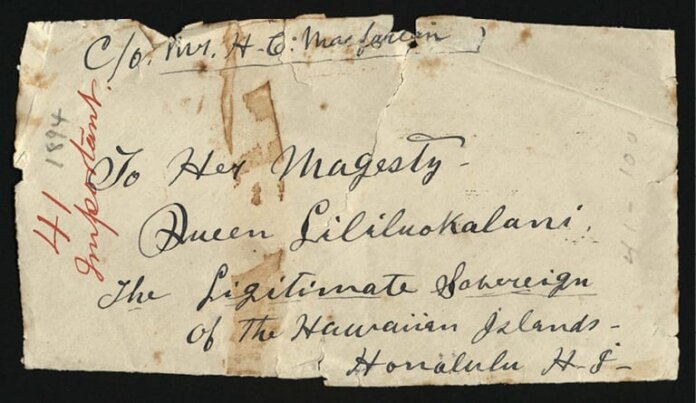 C/o. Mr. H. C. Macfarlein
To Her Magesty -
Queen Lililuokalani.
The Ligitimate Sovereign
of The Hawaiian Islands -
Honalulu H-I-
41
Important.
1894
41-100